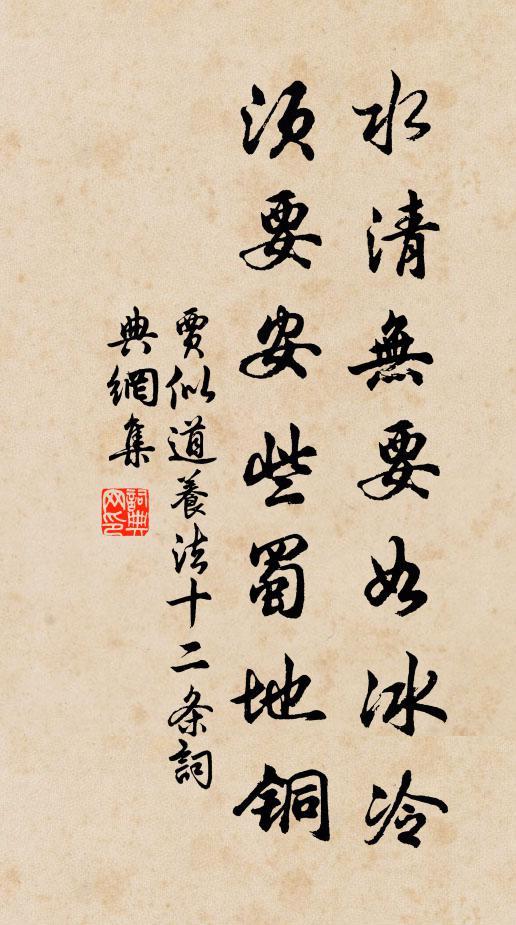 水清無要如冰冷
須要安些蜀地铜
賈似道養法十二条詞
典網集
詞典网印